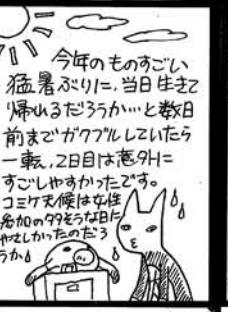 今年のものすごい
猛暑ぶりに、当日生きて
帰れるだろうか…と数日
前までガクブルしていたら
一転、2日目は意外に
すごしやすかったです。
コミケ天候は女性
参加の多そうな日に
やさしかったのだろ
うか